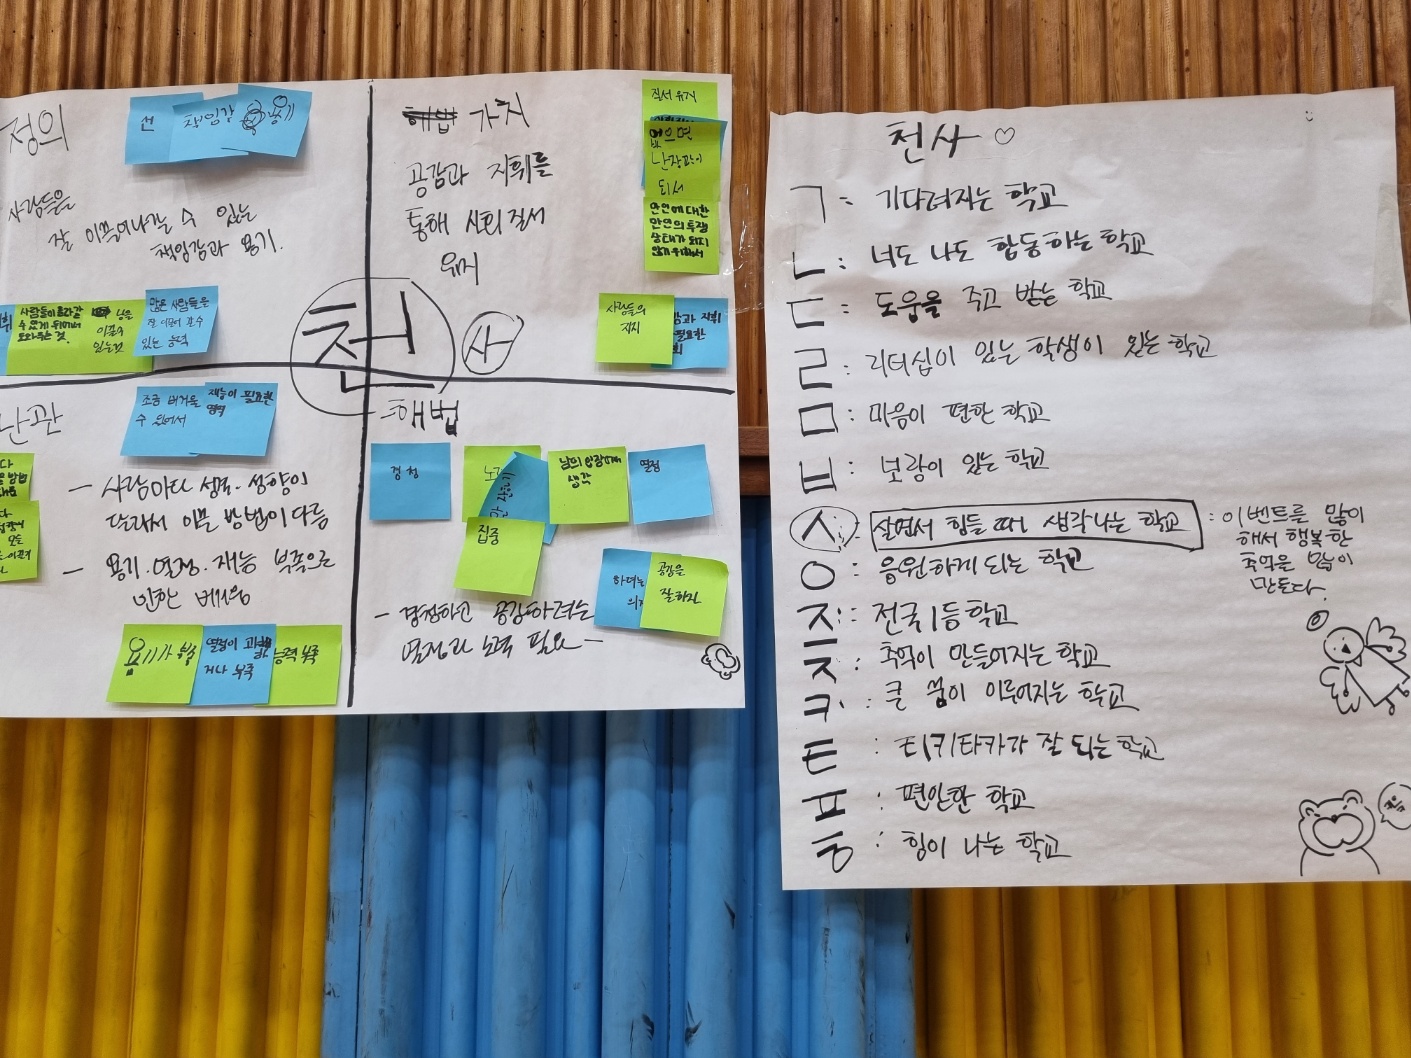 정의
선
책임감
용기
사람들은
잘 이끌어나갈 수 있는
책임감과 용기.
많은 사람들을
있는 능력
가치
공감과 지휘를
통해 사회질서
유지
질서 유지
없으면
난장판이
되서
만인에 대한
만인의 투쟁
상태가 되지
않기 위해서
사람들의
지지
천
사
난관
조금 버거울
수 있어서
재능이 필요한
영역
- 사람마다 성격·성향이
달라서 이끌 방법이 다름
- 용기·열정·재능 부족으로
인한 버거움
용기가 부족
열정이 과하
거나 부족
능력 부족
해법
경청
남의 입장에서
생각
열정
집중
하려는
공감을
잘하자
- 경청하고 공감하려는
열정과 노력 필요 -
천사 ♡
ㄱ : 기다려지는 학교
ㄴ : 너도 나도 합동하는 학교
ㄷ : 도움을 주고 받는 학교
ㄹ : 리더십이 있는 학생이 있는 학교
ㅁ : 마음이 편한 학교
ㅂ : 보람이 있는 학교
ㅅ : 살면서 힘들 때 생각나는 학교 : 이벤트를 많이
해서 행복한
추억을 많이
만든다.
ㅇ : 응원하게 되는 학교
ㅈ : 전국 1등 학교
ㅊ : 추억이 만들어지는 학교
ㅋ : 큰 꿈이 이루어지는 학교
ㅌ : 티키타카가 잘 되는 학교
ㅍ : 편안한 학교
ㅎ : 힘이 나는 학교